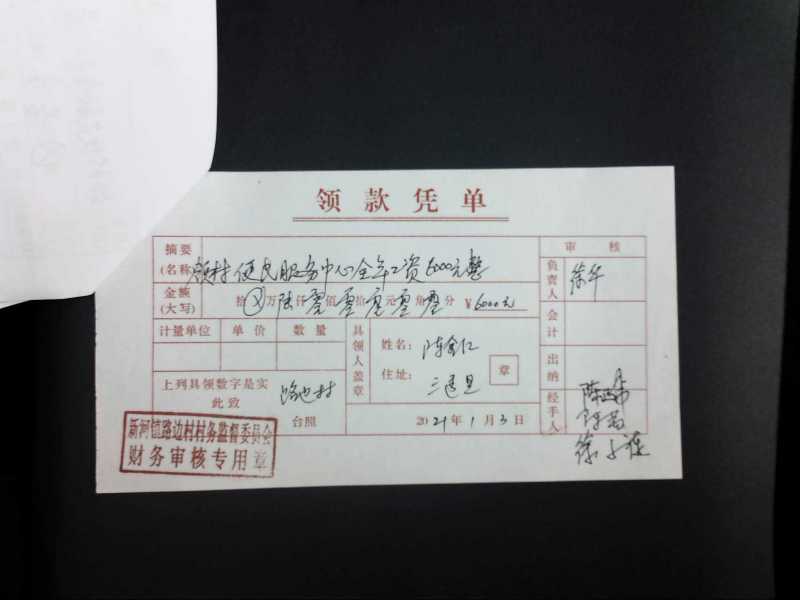 领款凭单
摘要
(名称)
领村便民服务中心全年工资6000元整
审核
负责人
徐华
金额
(大写)
拾⊗万陆仟零佰零拾零元零角零分 ¥6000元
会计
计量单位 单价 数量
具领人盖章
姓名:
住址:
章
出纳
上列具领数字是实
此致
路边村
台照
2021年1月3日
经手人
新河镇路边村村务监督委员会
财务审核专用章